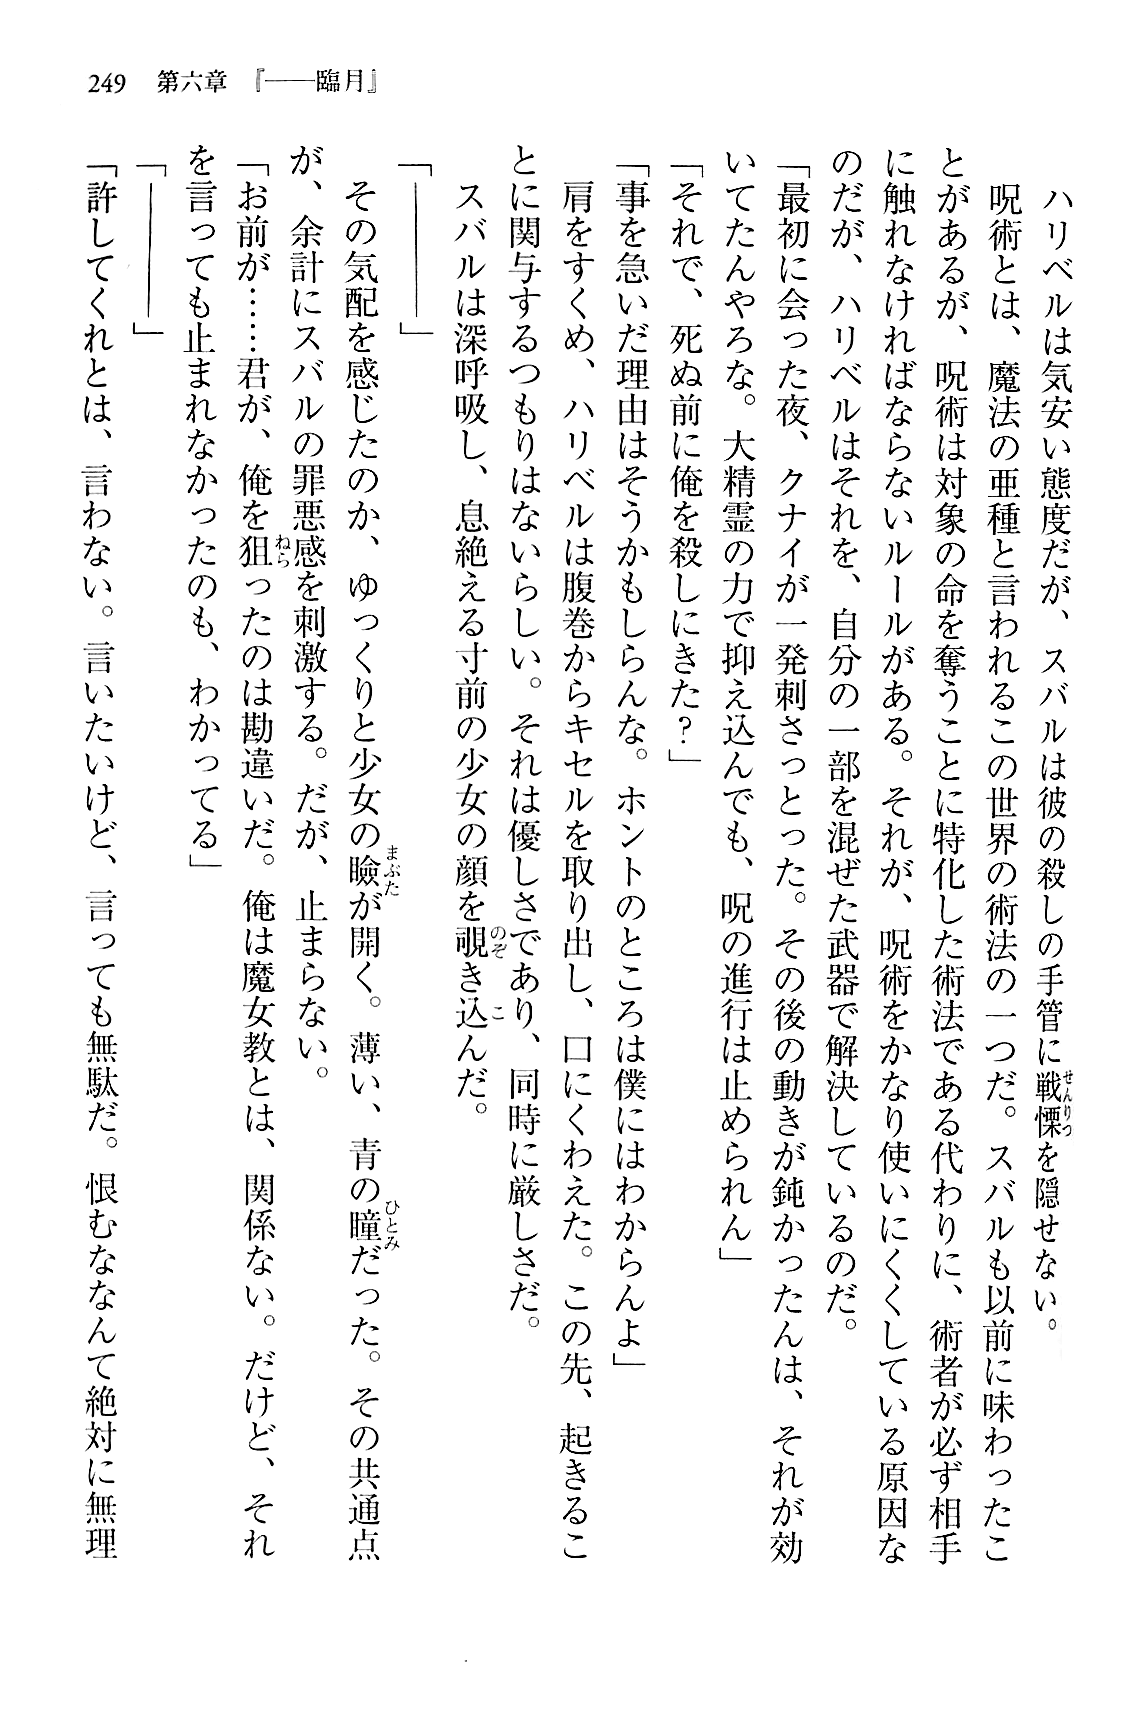 249　第六章　『――臨月』
　ハリベルは気安い態度だが、スバルは彼の殺しの手管に戦慄を隠せない。
　呪術とは、魔法の亜種と言われるこの世界の術法の一つだ。スバルも以前に味わったこ
とがあるが、呪術は対象の命を奪うことに特化した術法である代わりに、術者が必ず相手
に触れなければならないルールがある。それが、呪術をかなり使いにくくしている原因な
のだが、ハリベルはそれを、自分の一部を混ぜた武器で解決しているのだ。
「最初に会った夜、クナイが一発刺さっとった。その後の動きが鈍かったんは、それが効
いてたんやろな。大精霊の力で抑え込んでも、呪の進行は止められん」
「それで、死ぬ前に俺を殺しにきた？」
「事を急いだ理由はそうかもしらんな。ホントのところは僕にはわからんよ」
　肩をすくめ、ハリベルは腹巻からキセルを取り出し、口にくわえた。この先、起きるこ
とに関与するつもりはないらしい。それは優しさであり、同時に厳しさだ。
　スバルは深呼吸し、息絶える寸前の少女の顔を覗き込んだ。
「――――」
　その気配を感じたのか、ゆっくりと少女の瞼が開く。薄い、青の瞳だった。その共通点
が、余計にスバルの罪悪感を刺激する。だが、止まらない。
「お前が……君が、俺を狙ったのは勘違いだ。俺は魔女教とは、関係ない。だけど、それ
を言っても止まれなかったのも、わかってる」
「――――」
「許してくれとは、言わない。言いたいけど、言っても無駄だ。恨むななんて絶対に無理